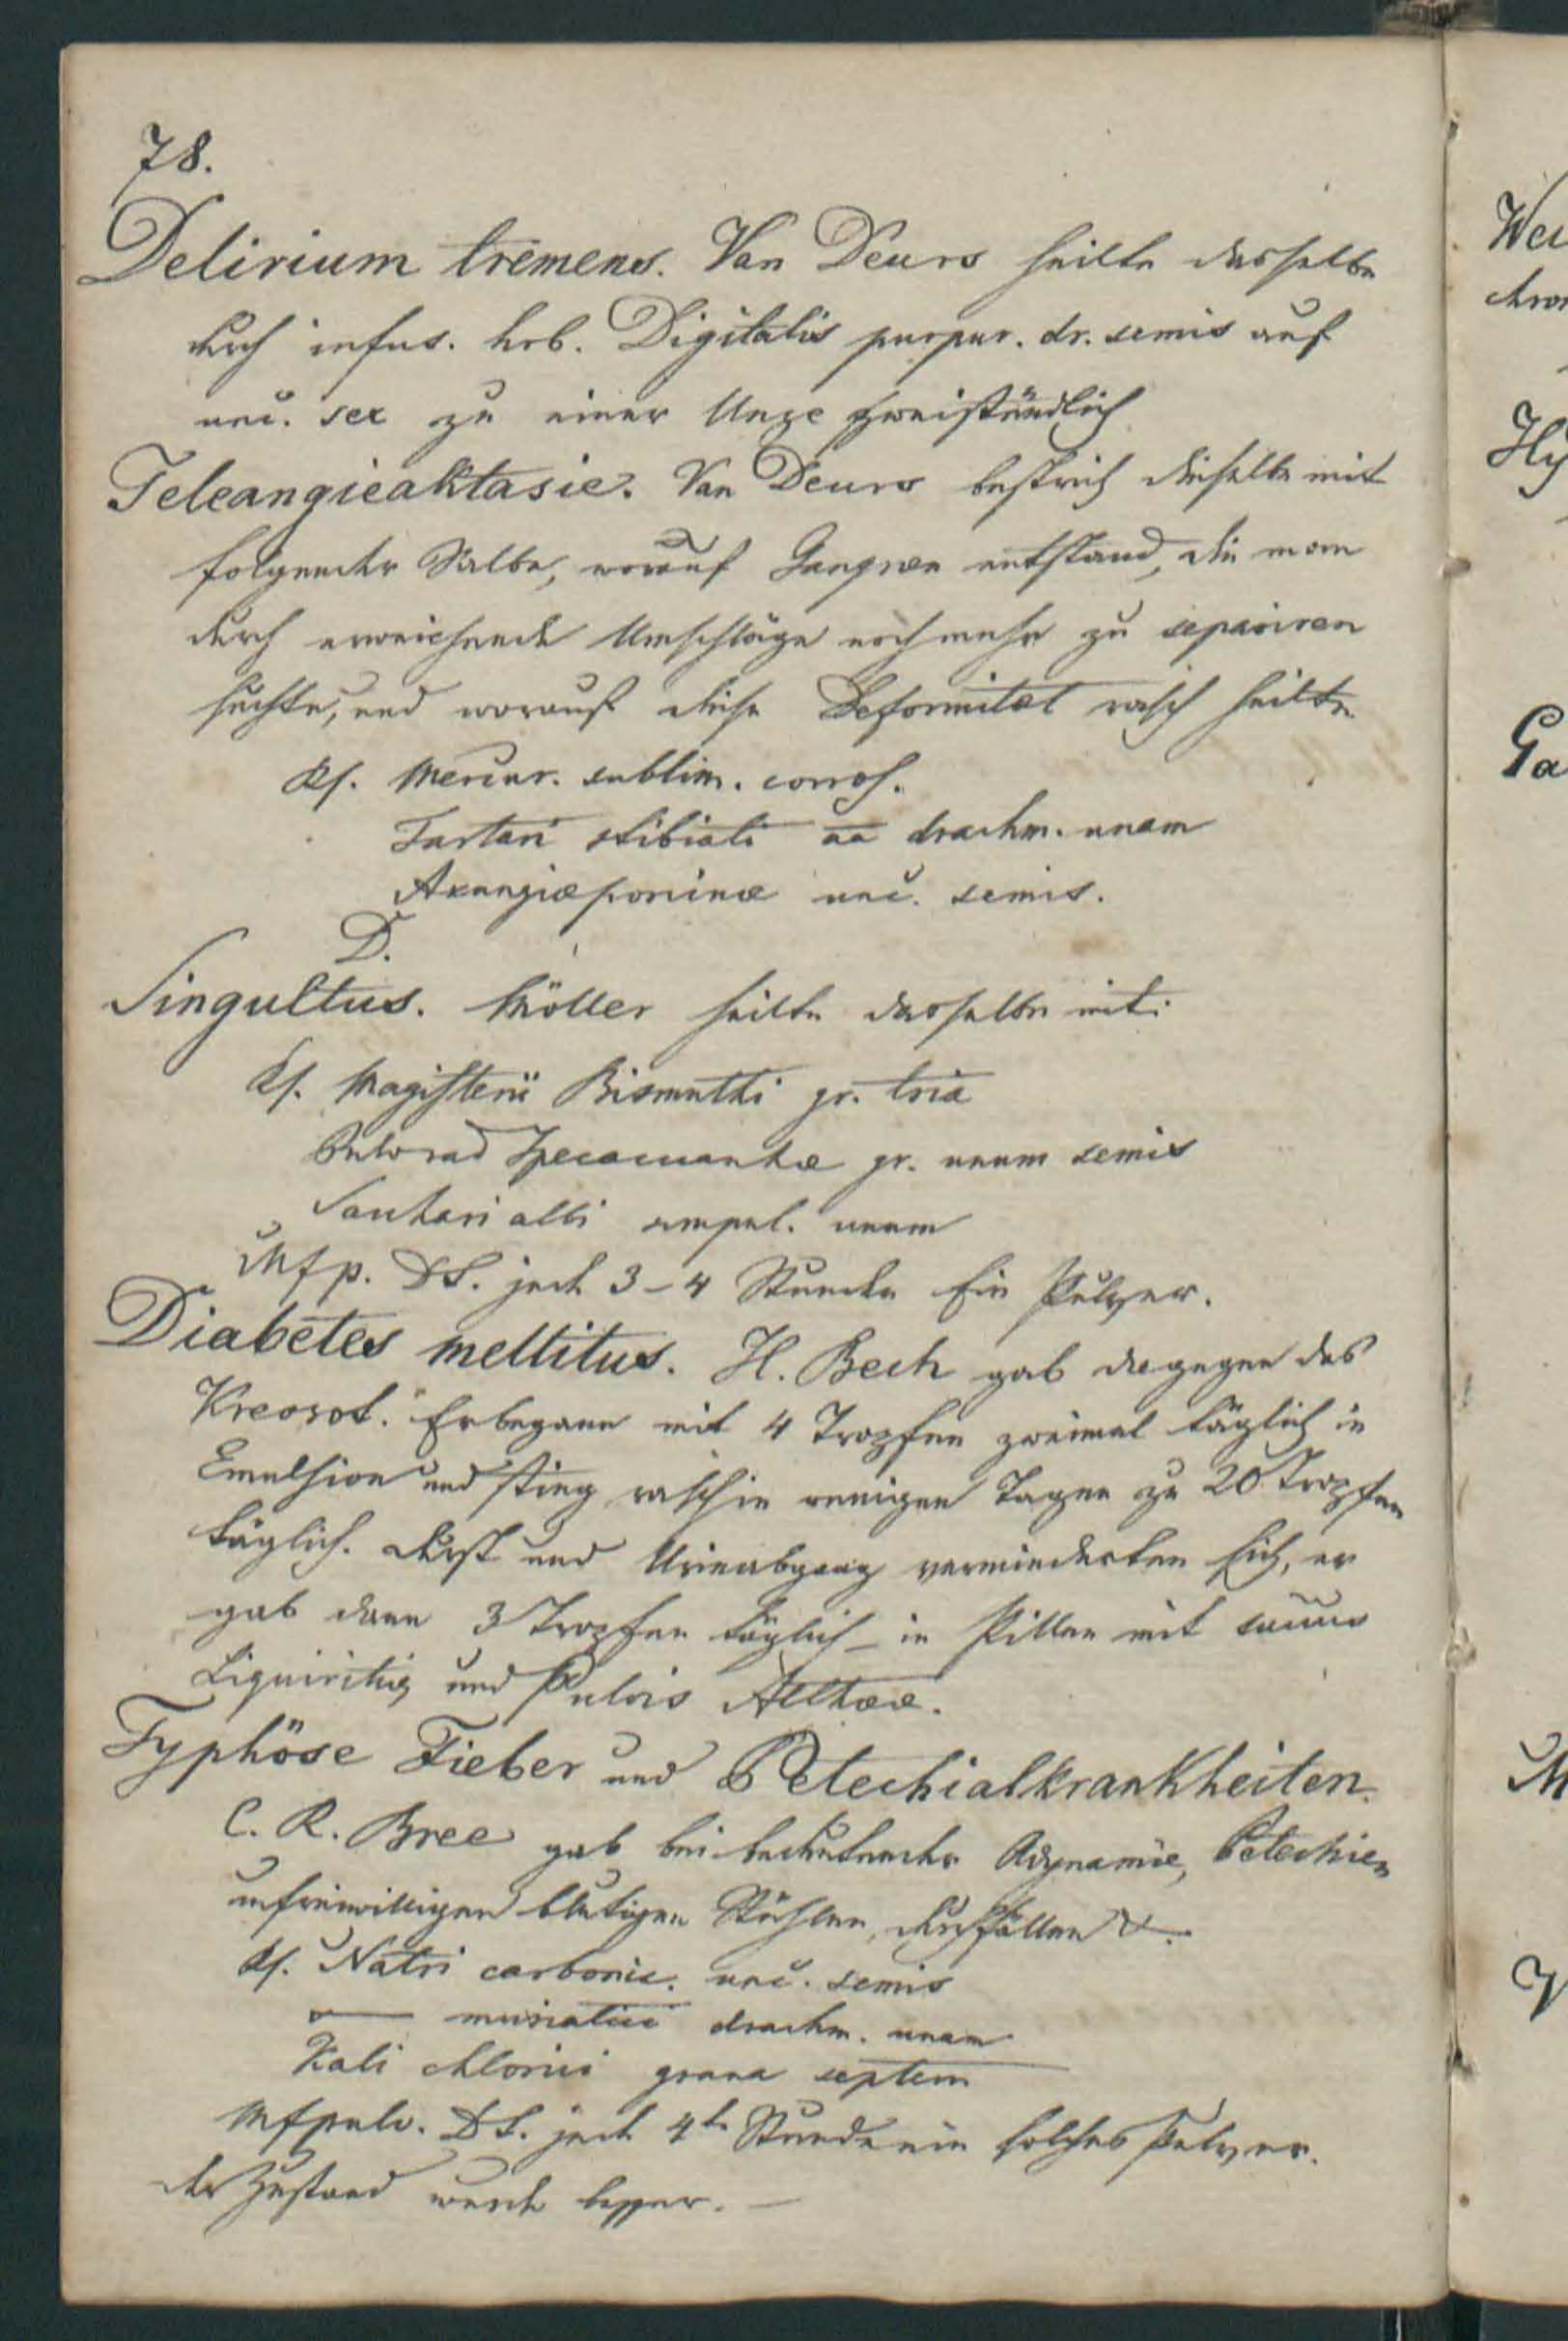 78.
Delirium tremens. Van Deurs heilte dasselbe
durch infus. hrb. Digitalis purpur. dr. semis auf
unc. sex zu einer Unze zweistündlich
Teleangieaktasie. Van Deurs bestrich dieselbe mit
folgender Salbe, worauf Gangræn entstand, die man
durch erweichende Umschläge noch mehr zu separiren
suchte, und worauf diese Deformität rasch heilte
Rf. Mercur. sublim. corros.
Tartari stibiati aa drachm. unam
Axungiæ porcinæ unc. semis.
D.
Singultus. Möller heilte dasselbe mit:
Rf. Magisterii Bismuthi gr. tria
Pulv rad Ipecacuanhæ gr. unum semis
Sacchari albi scrupul. unum
Mfp. DS. jede 3-4 Stunden Ein Pulver.
Diabetes mellitus. H. Bech gab dagegen das
Kreosot. Er begann mit 4 Tropfen zweimal täglich in
Emulsion und stieg rasch in wenigen Tagen zu 20 Tropfen
täglich. Durst und Urinabgang verminderten sich, er
gab dann 3 Tropfen täglich in Pillen mit succus
Liquiritiæ und Pulvis Altheæ.
Typhöse Fieber und Petechialkrankheiten.
C. R. Bree gab bei bedeutender Adynamie, Petechien
unfreiwilligen blutigen Stühlen, Durchfällen &.
Rf. Natri carbonic. unc. semis
— muriatici drachm. unam
Kali chlorici grana septem
Mfpulv. DS. jede 4te Stunde ein solches Pulver.
Der Zustand wurde besser. —